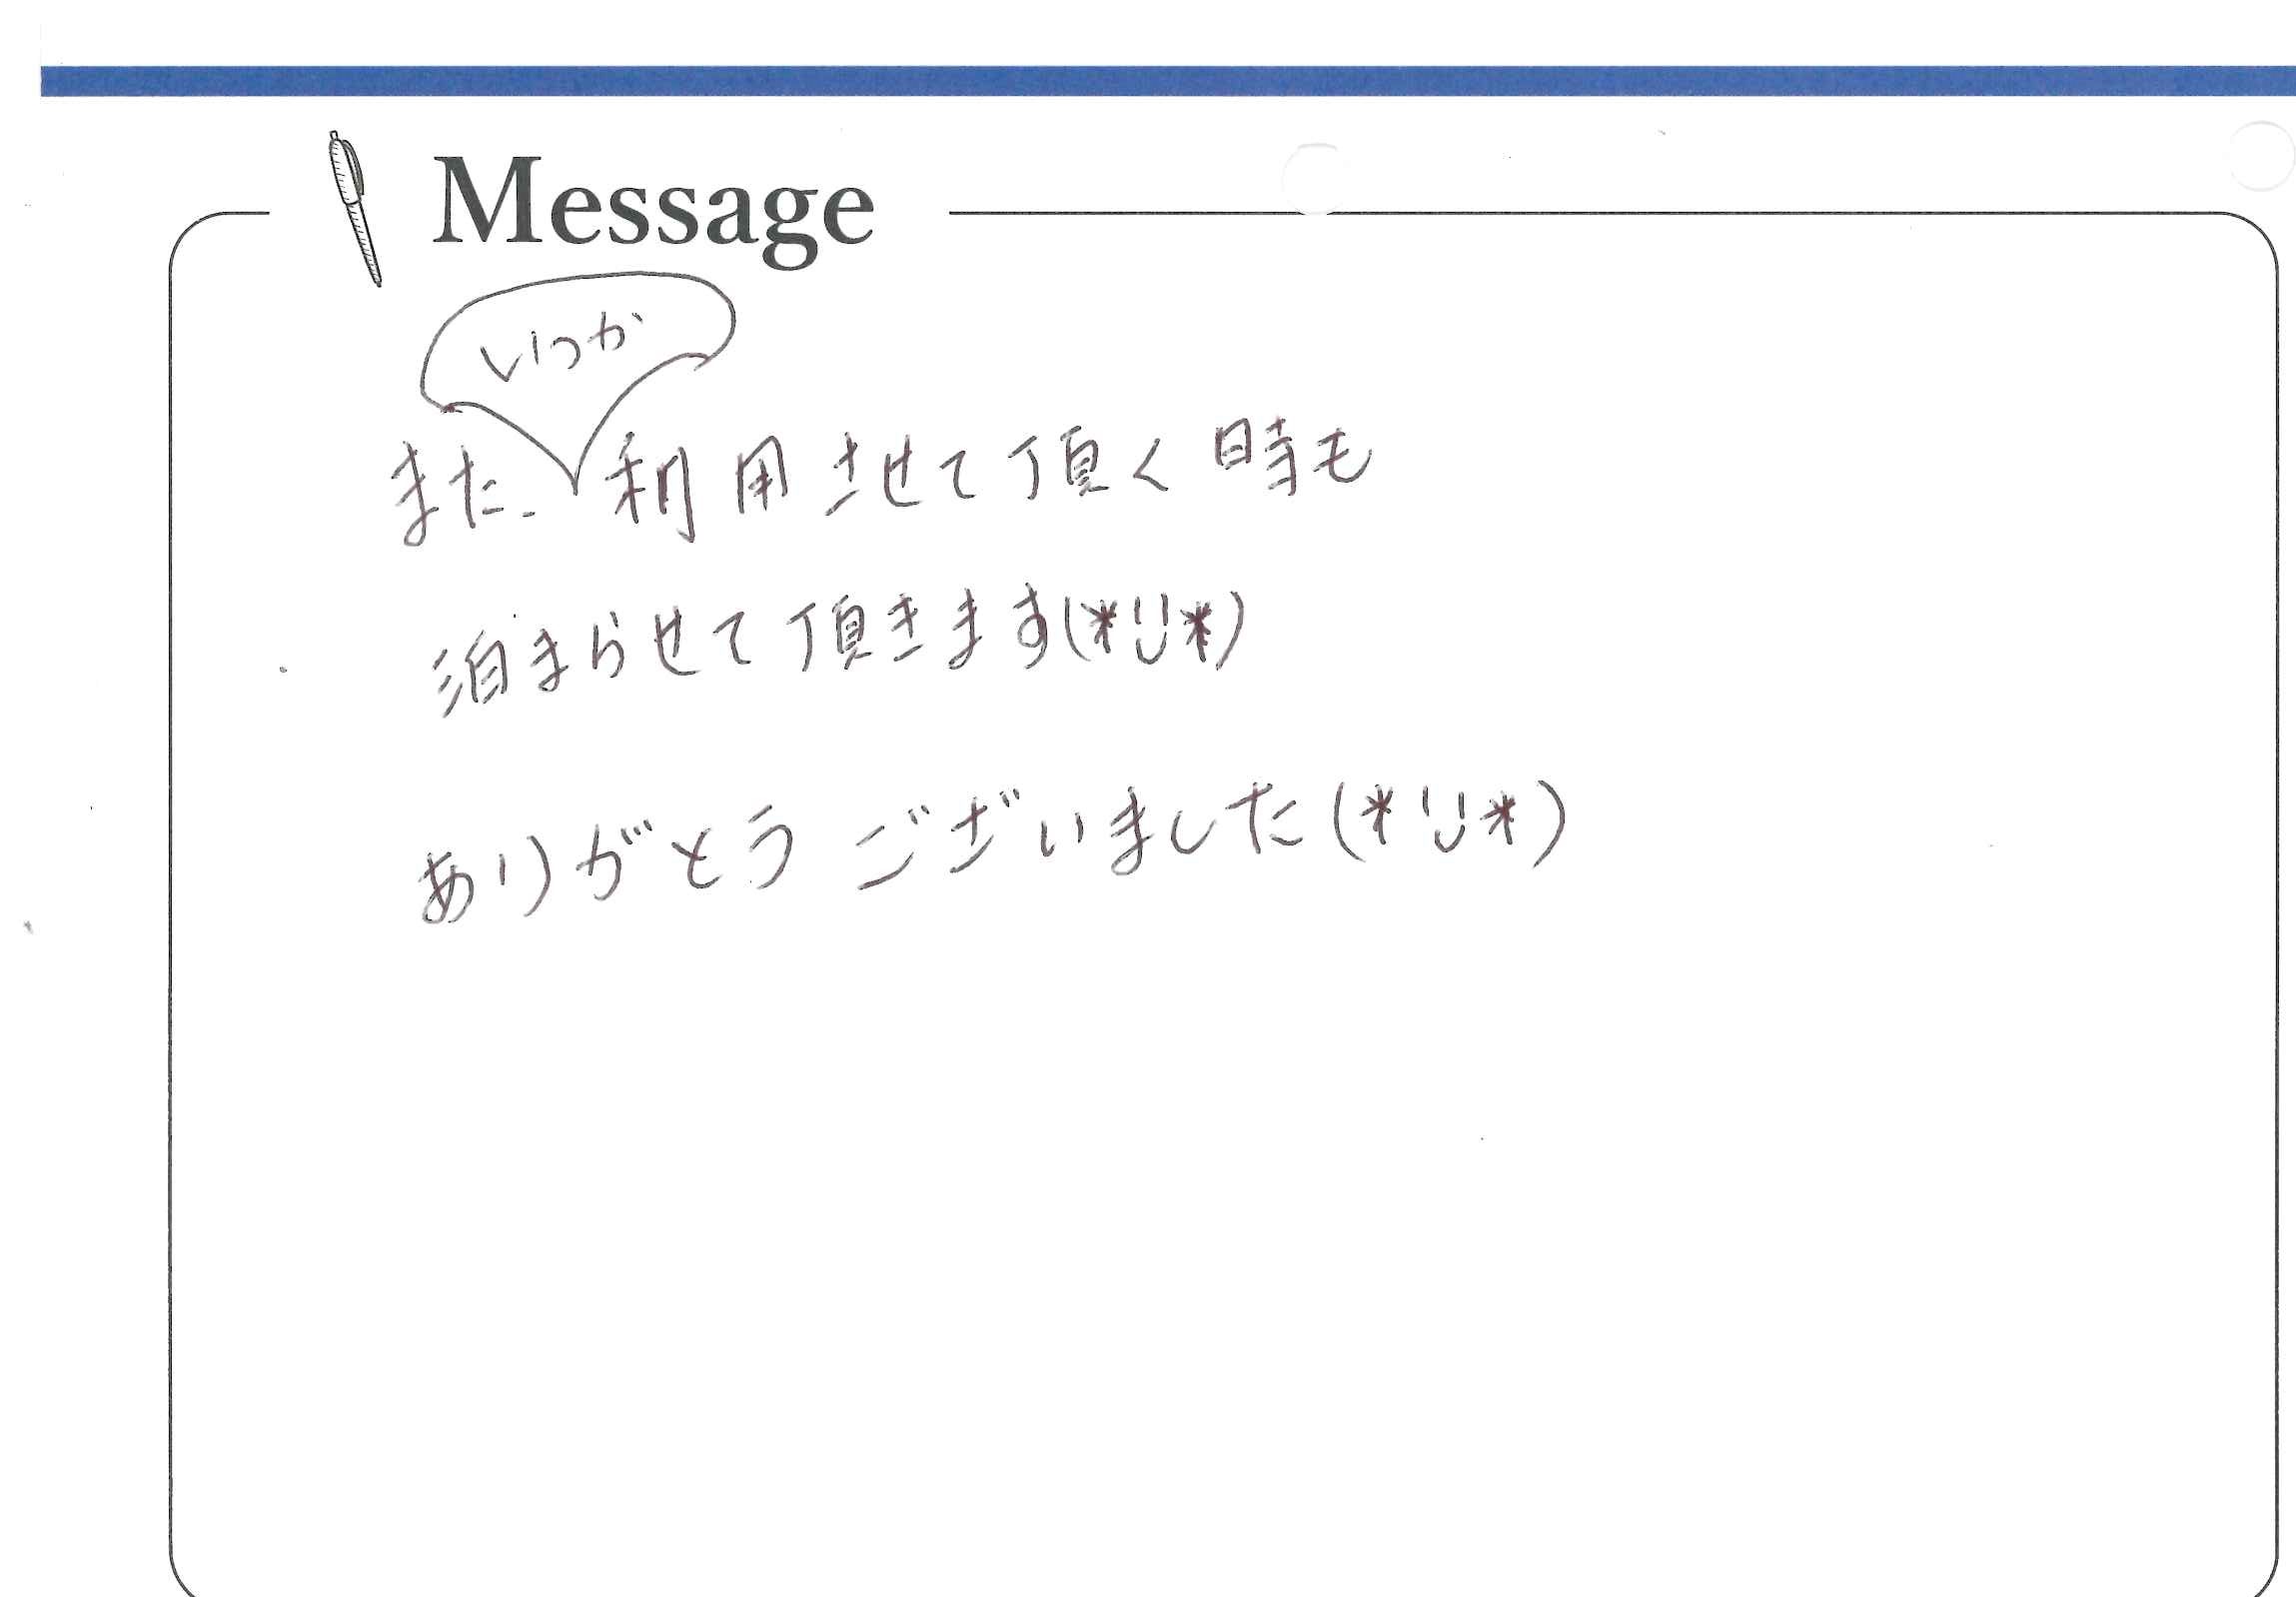 Message
いつか
また 利用させて頂く時も
泊まらせて頂きます(*¨*)
ありがとうございました(*¨*)